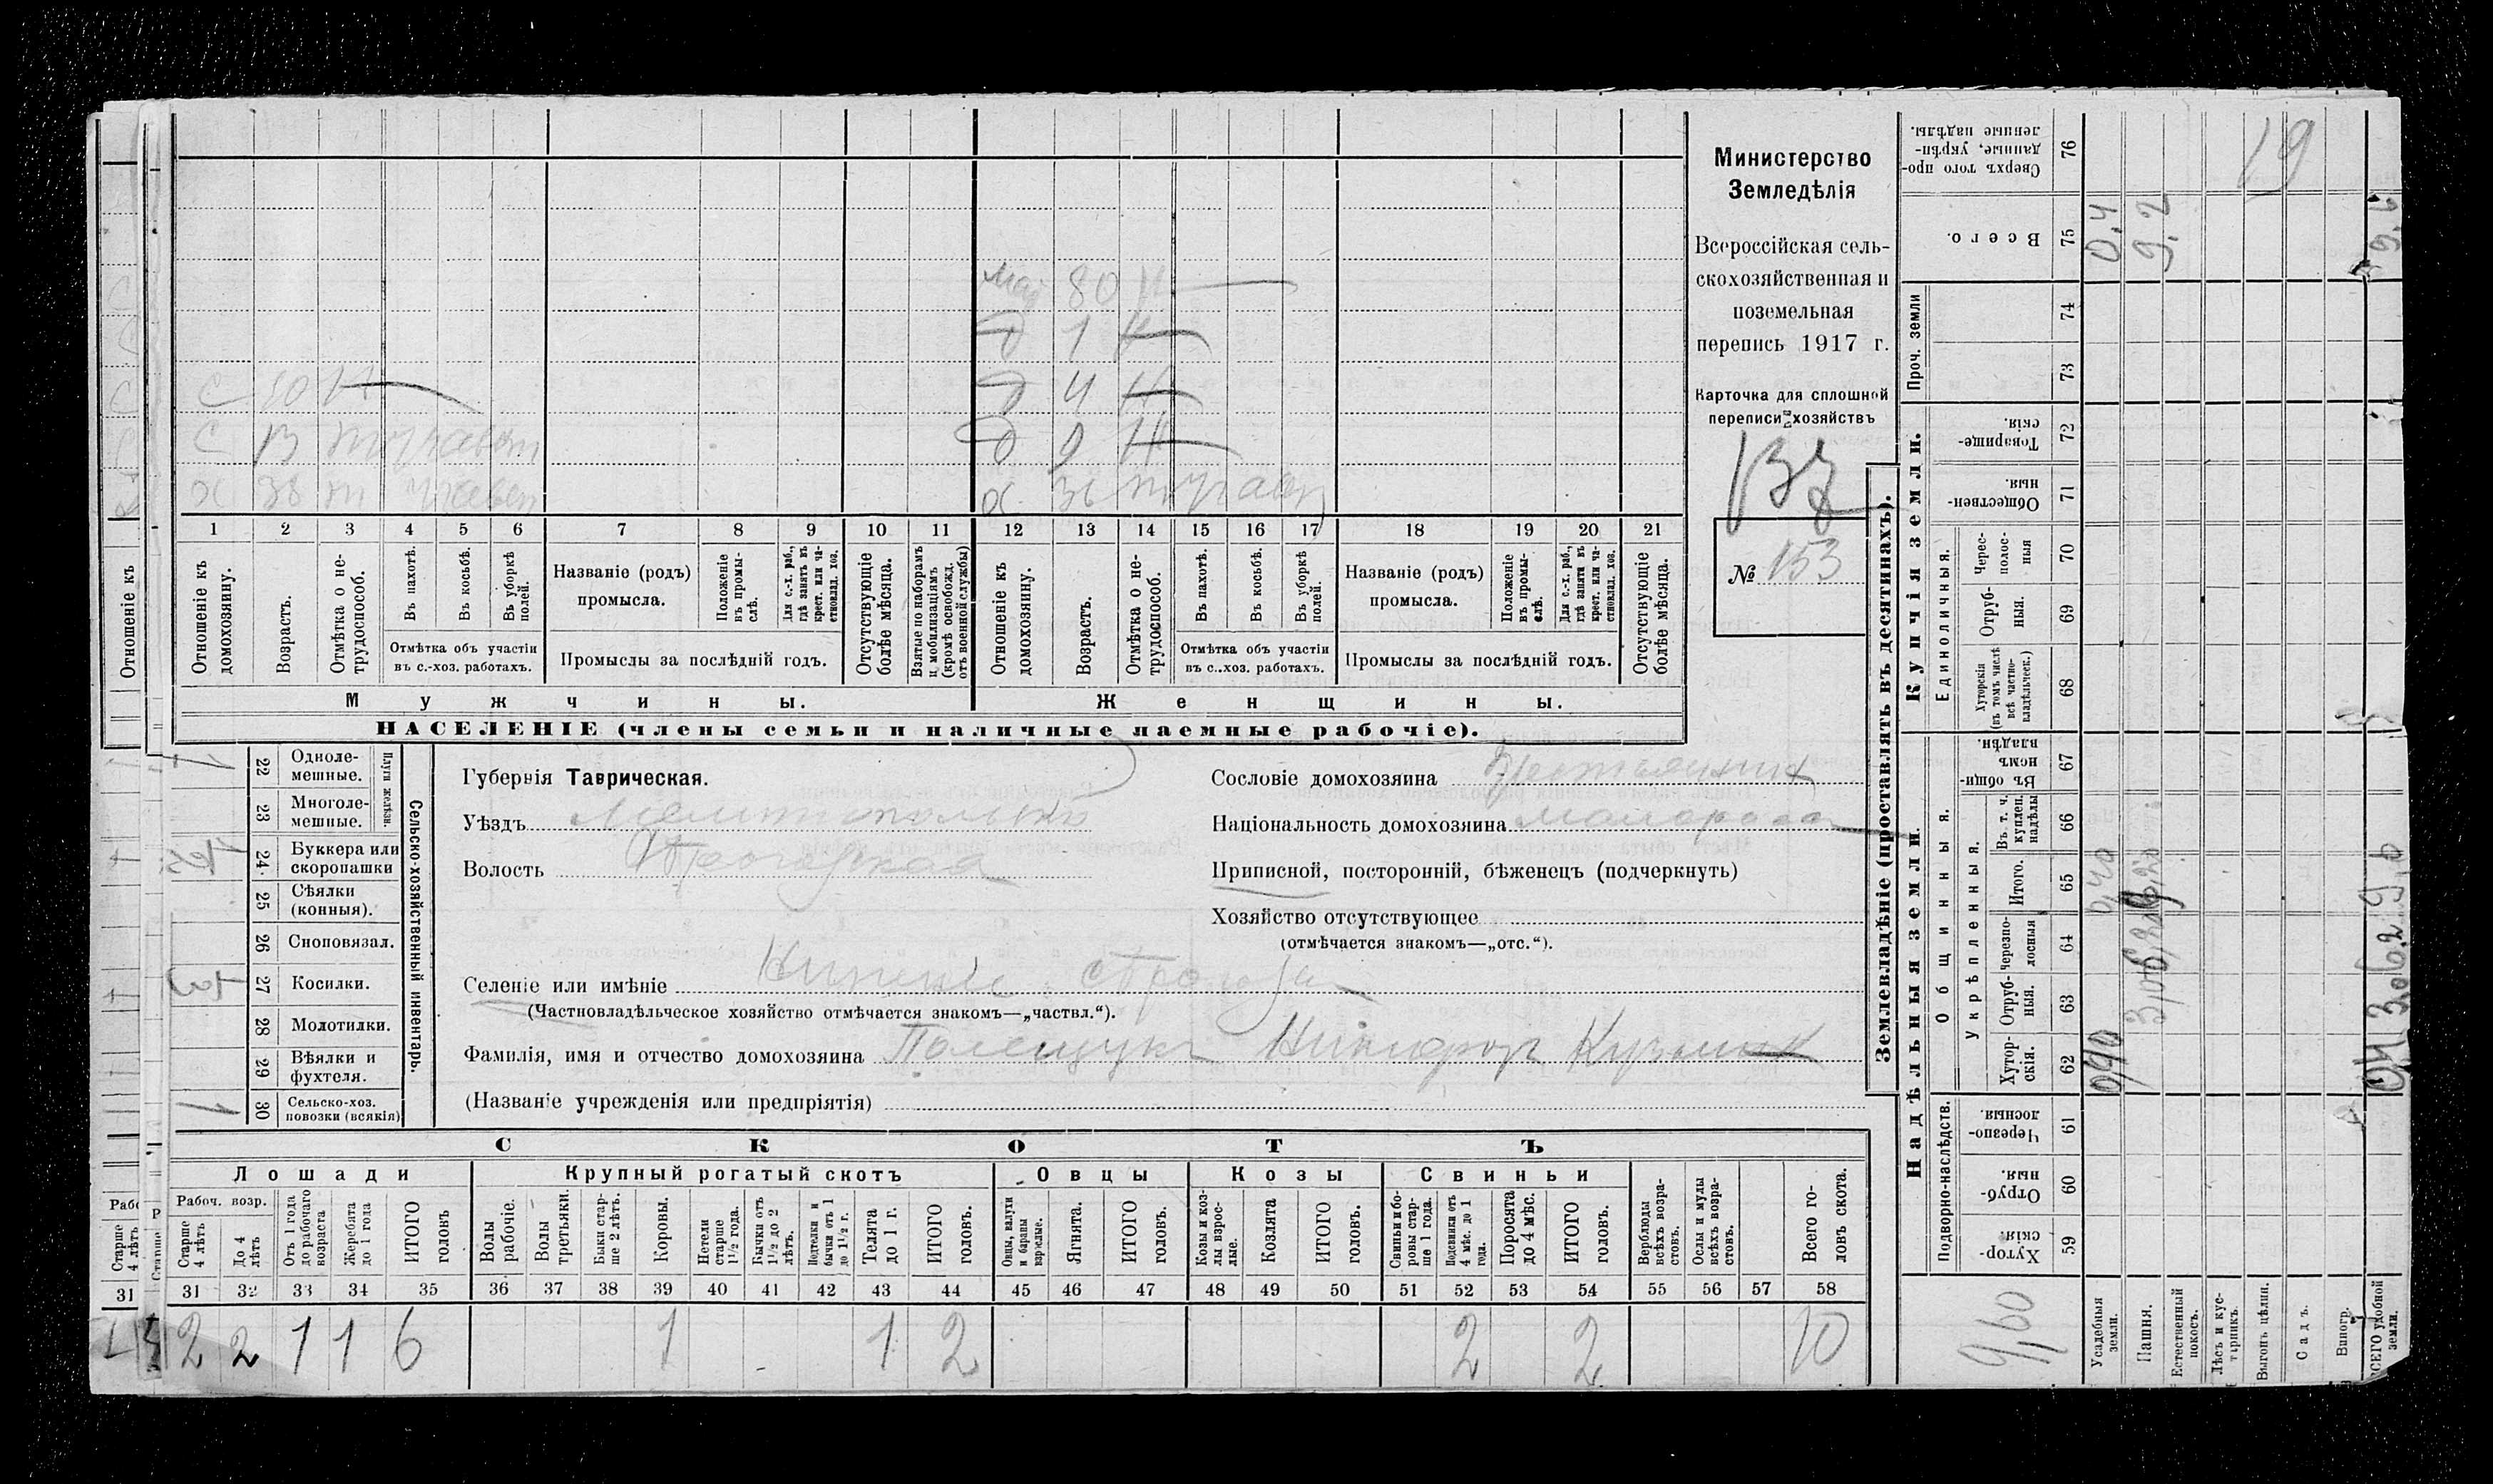 Министерство
Земледѣлія
Всероссійская сель-
скохозяйственная и
поземельная
перепись 1917 г.
Карточка для сплошной
переписи хозяйствъ
№ 153
мат 80 Н
д 1 Н
С 10 Н
д 4 Н
С 13
д 9 Н
х
х
1 2 3 4 5 6 7 8 9 10 11 12 13 14 15 16 17 18 19 20 21
Отношеніе къ домохозяину.
Возрастъ.
Отмѣтка о не-трудоспособ.
Въ пахотѣ.
Въ косьбѣ.
Въ уборкѣ полей.
Отмѣтка объ участіи
въ с.-хоз. работахъ.
Названіе (родъ)
промысла.
Положеніе въ промы-слѣ.
Для с.-х. раб., гдѣ занятъ въ крест. или ча-стновлад. хоз.
Промыслы за послѣдній годъ.
Отсутствующіе болѣе мѣсяца.
Взятые по наборамъ и мобилизаціямъ (кромѣ освобожд. отъ военной службы)
Отношеніе къ домохозяину.
Возрастъ.
Отмѣтка о не-трудоспособ.
Въ пахотѣ.
Въ косьбѣ.
Въ уборкѣ полей.
Отмѣтка объ участіи
въ с..хоз. работахъ.
Названіе (родъ)
промысла.
Положеніе въ промы-слѣ.
Для с.-х. раб., гдѣ занята въ крест. или ча-стновлад. хоз.
Промыслы за послѣдній годъ.
Отсутствующіе болѣе мѣсяца.
Мужчины.
Женщины.
НАСЕЛЕНІЕ (члены семьи и наличные наемные рабочіе).
Отношеніе къ
Сельско-хозяйственный инвентарь.
Плуги желѣзн.
22 Одноле-мешные.
23 Многоле-мешные.
24 Буккера или скоропашки
25 Сѣялки (конныя).
26 Сноповязал.
27 Косилки.
28 Молотилки.
29 Вѣялки и фухтеля.
30 Сельско-хоз. повозки (всякія)
1
Губернія Таврическая.
Уѣздъ
Волость
Селеніе или имѣніе
(Частновладѣльческое хозяйство отмѣчается знакомъ—„частвл.“).
Фамилія, имя и отчество домохозяина Полещукъ Никифоръ Кузьмичъ
(Названіе учрежденія или предпріятія)
Сословіе домохозяина
Національность домохозяина
Приписной, посторонній, бѣженецъ (подчеркнуть)
Хозяйство отсутствующее
(отмѣчается знакомъ—„отс.“).
СКОТЪ
Лошади
Крупный рогатый скотъ
Овцы
Козы
Свиньи
Рабоч. возр.
Старше 4 лѣтъ
До 4 лѣтъ
Отъ 1 года до рабочаго возраста
Жеребята до 1 года
ИТОГО головъ
Волы рабочіе.
Волы третьяки.
Быки стар-ше 2 лѣтъ.
Коровы.
Нетели старше 1½ года.
Бычки отъ 1½ до 2 лѣтъ.
Подтелки и бычки отъ 1 до 1½ г.
Телята до 1 г.
ИТОГО головъ.
Овцы, валухи и бараны взрослые.
Ягнята.
ИТОГО головъ.
Козы и коз-лы взрос-лые.
Козлята
ИТОГО головъ.
Свиньи и бо-ровы стар-ше 1 года.
Подсвинки отъ 4 мѣс. до 1 года.
Поросята до 4 мѣс.
ИТОГО головъ.
Верблюды всѣхъ возра-стовъ.
Ослы и мулы всѣхъ возра-стовъ.
Всего го-ловъ скота.
31 32 33 34 35 36 37 38 39 40 41 42 43 44 45 46 47 48 49 50 51 52 53 54 55 56 57 58
2 2 1 1 6 1 1 2 2 2 10
Землевладѣніе (проставлять въ десятинахъ).
Надѣльныя земли.
Купчія земли.
Проч. земли
Подворно-наслѣдств.
Общинныя.
Укрѣпленныя.
Единоличныя.
Хутор-скія. 59
Отруб-ныя. 60
Черезпо-лосныя. 61
Хутор-скія. 62
Отруб-ныя. 63
Черезпо-лосныя 64
Итого. 65
Въ т. ч. куплен. надѣлы 66
Въ общи-номъ владѣн. 67
Хуторскія (въ томъ числѣ всѣ частно-владѣльчек.) 68
Отруб-ныя. 69
Черес-полос-ныя 70
Обществен-ныя. 71
Товарище-скія. 72
73
74
Всего. 75
Сверхъ того про-данные, укрѣп-ленные надѣлы. 76
Усадебныя земли.
Пашня.
Естественный покосъ.
Лѣсъ и кус-тарникъ.
Выгонъ цѣлин.
Садъ.
Виногр.
ВСЕГО удобной земли.
9,60
0,40
0,4
9,2
9,6
19